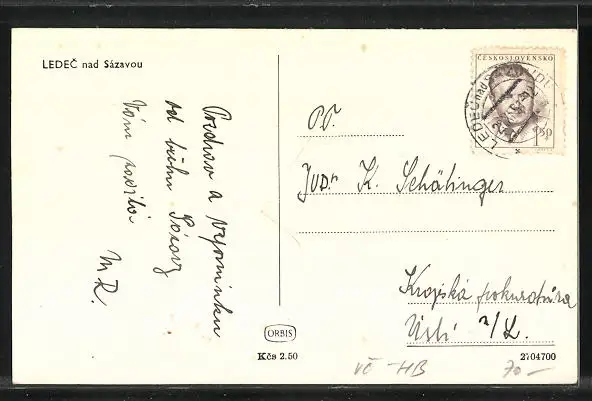 LEDEČ nad Sázavou
Pozdrav a vzpomínku
od břehu Sázavy
Vám posílá
M R.
ČESKOSLOVENSKO
1.50
LEDEČ nad
PT.
JUDr K. Schätinger
Krajská prokuratura
Ústí n/L.
ORBIS
Kčs 2.50
2704700
VČ -HB
70-